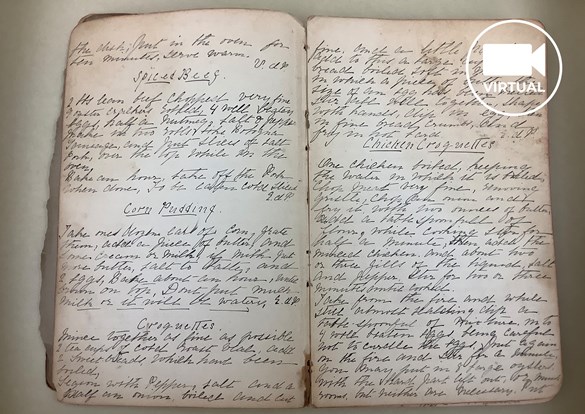 the dish; put in the oven for
ten minutes, serve warm.
E. d P.
Spiced Beef.
2 lbs lean beef chopped very fine
2 soda crackers, 2 well beaten
eggs, half a nutmeg, salt & pepper
make in two rolls like Bologna
Sausage, and put slices of salt
Pork, over the top while in the
oven,
Bake an hour, take off the Pork
when done, To be eaten cold sliced
E. d P.
Corn Pudding.
Take one dozen ears of corn, grate
them, add a piece of butter, and
some cream or milk, if milk put
more butter, salt to taste, and
2 eggs, Bake about an hour,
much
milk or it will be watery, E. d P.
Croquettes
Mince together as fine as possible
of cold roast Veal, add
2 Sweet breads, which have been
boiled,
Season with Pepper, salt and a
half an onion, boiled and cut
fine, and a little
add to this a large
bread boiled soft in
in which a piece
size of an egg has
Stir well together, shape
with hands, dip in egg
in fine bread crumbs, and
fry in hot lard E. d P.
VIRTUAL
Chicken Croquettes
One chicken boiled, keeping
the water in which it is boiled,
Chop meat very fine, removing
gristle, Chop an onion and
fry it with two ounces of butter,
Add a tablespoonful of
flour, while cooking stir for
half a minute, then add the
minced chicken and about two
or three gills of the liquid, salt
and pepper Stir for two or three
minutes
Take from the fire and while
still almost
tablespoonful of
2 well beaten eggs being careful
not to curdle the eggs, put again
on the fire and stir for a minute.
You may put in oysters
with the hard part left out,
rooms, but neither are necessary. Put